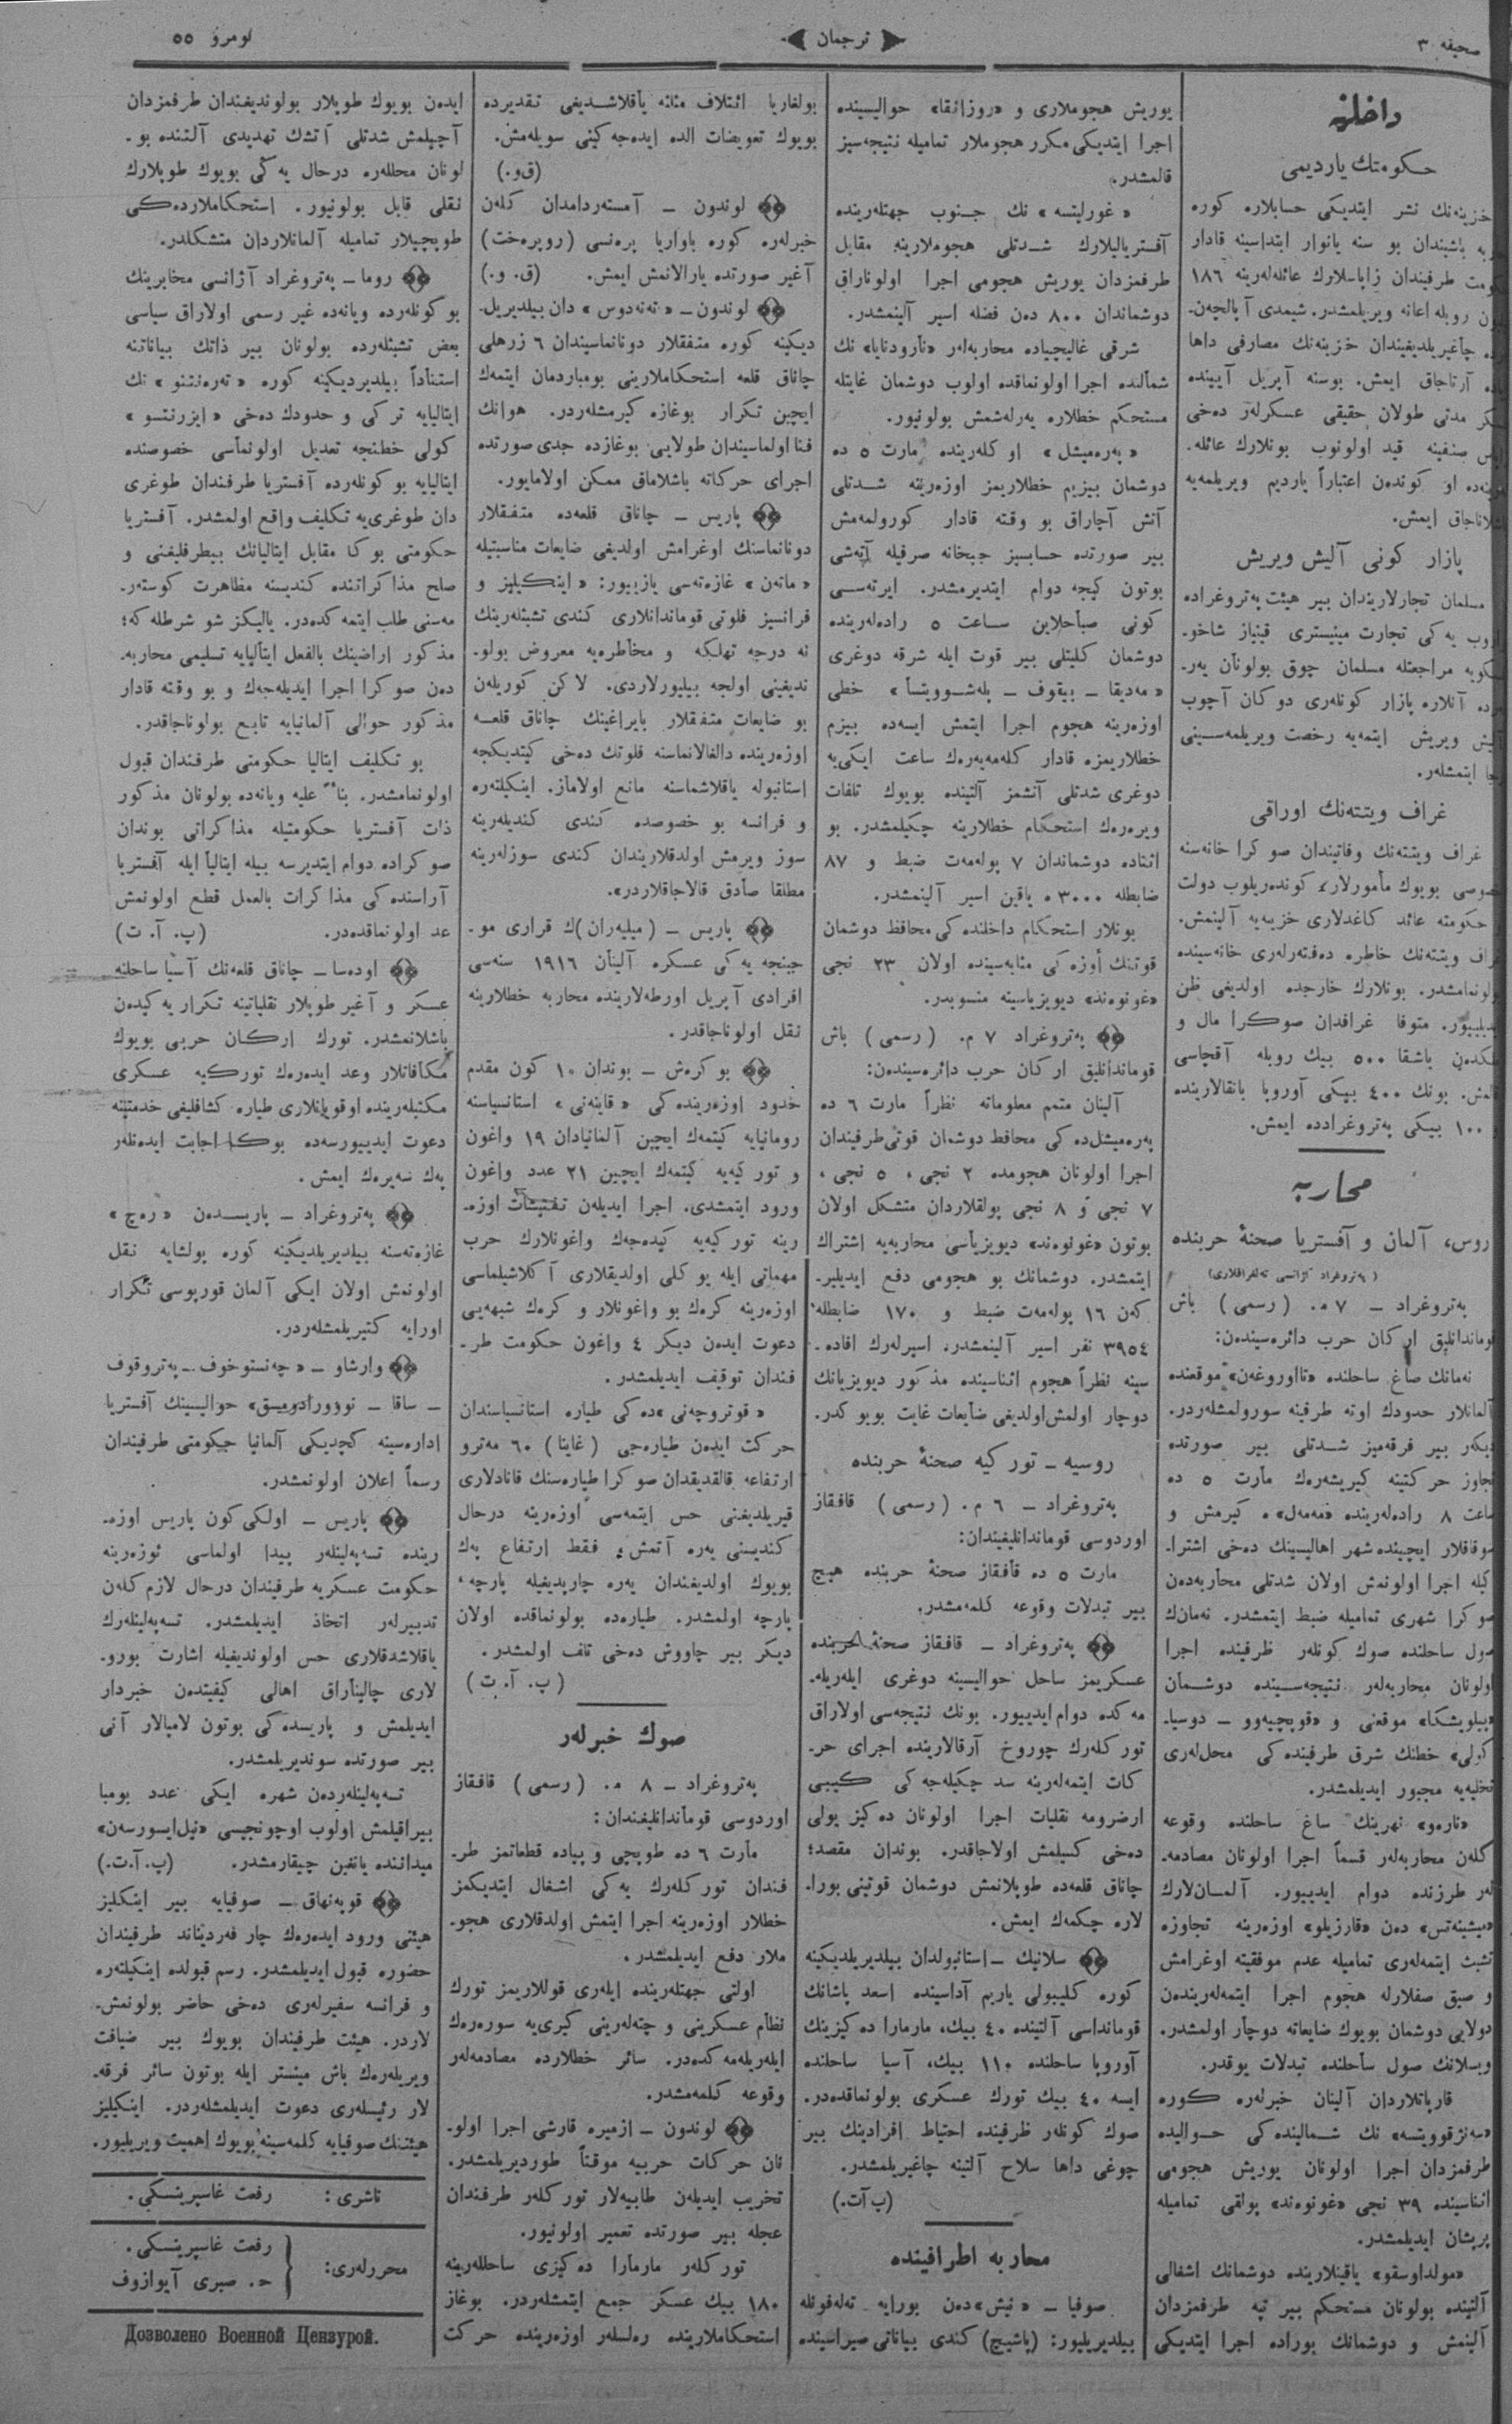 صحيفه ٣
ترجمان
نومرو ٥٥
داخليه
حكومتك يارديمى
خزينه‌نك نشر ايتديكى حسابلاره كوره
باشندان بو سنه يانوار ابتداسينه قادار
طرفيندان زاپاسلارك عائله‌لرينه ١٨٦
روبله اعانه ويريلمشدر. شيمدى آپالچه‌ن‌ـ
چاغيريلديغيندان خزينه‌نك مصارفى داها
آرتاجاق ايمش. بوسنه آپريل آيينده
مدتى طولان حقيقى عسكرلر ده‌خى
صنفينه قيد اولونوب بونلارك عائله‌ـ
او كوندن اعتباراً يارديم ويريلمه‌يه
ايمش.
پازار كونى آليش ويريش
مسلمان تجارلاريندان بير هيئت په‌تروغراده
يه كى تجارت مينيسترى قينياز شاخوـ
مراجعتله مسلمان چوق بولونان يه‌رـ
آنلاره پازار كونله‌رى دوكان آچوب
ويريش ايتمه‌يه رخصت ويريلمه‌سينى
ايتمشله‌ر.
غراف ويتته‌نك اوراقى
غراف ويتته‌نك وفاتيندان صوكرا خانه‌سنه
بويوك مأمورلار كونده‌ريلوب دولت
حكومته عائد كاغدلارى خزينه‌يه آلينمش.
ويتته‌نك خاطره ده‌فته‌رله‌رى خانه‌سينده
بونلارك خارجده اولديغى ظن
متوفا غرافدان صوكرا مال و
باشقا ٥٠٠ بيك روبله آقچاسى
بونك ٤٠٠ بيكى آوروپا بانقالارينده
١٠٠ بيكى په‌تروغرادده ايمش.
محاربه
روس، آلمان و آفستريا صحنهٔ حربنده
(په‌تروغراد آژانسى ته‌لغرافلارى)
په‌تروغراد ــ ٧ م. (رسمى) باش
قومندانليق اركان حرب دائره‌سيندن:
نه‌مانك صاغ ساحلنده «تااوروغه‌ن» موقعنده
آلمانلار حدودك اوته طرفينه سورولمشله‌ردر.
ديكه‌ر بير فرقه‌ميز شدتلى بير صورتده
تجاوز حركتينه كيريشه‌رك مارت ٥ ده
ساعت ٨ راده‌له‌رينده «مه‌مه‌ل»ه كيرمش و
سوقاقلار ايچينده شهر اهاليسينك ده‌خى اشتراـ
كيله اجرا اولونمش اولان شدتلى محاربه‌دن
صوكرا شهرى تماميله ضبط ايتمشدر. نه‌مانك
صول ساحلنده صوك كونله‌ر ظرفينده اجرا
اولونان محاربه‌له‌ر نتيجه‌سينده دوشمان
«پيلويشكا» موقعنى و «قوپچيه‌وو ــ دوسياـ
كولى» خطنك شرق طرفينده كى محل‌له‌رى
تخليه‌يه مجبور ايديلمشدر.
«ناره‌و» نهرينك ساغ ساحلنده وقوعه
كله‌ن محاربه‌له‌ر قسماً اجرا اولونان مصادمه‌ـ
له‌ر طرزنده دوام ايدييور. آلمانلارك
«ميشينه‌تس» ده‌ن «قارزيلو» اوزه‌رينه تجاوزه
تشبث ايتمه‌له‌رى تماميله عدم موفقيته اوغرامش
و صيق صفلارله هجوم اجرا ايتمه‌له‌ريندن
دولايى دوشمان بويوك ضايعاته دوچار اولمشدر.
ويسلانك صول ساحلنده تبدلات يوقدر.
قارپاتلاردان آلينان خبرله‌ره كوره
نك شمالينده كى حواليده
طرفمزدان اجرا اولونان يوريش هجومى
اثناسينده ٣٩ نجى «غونوه‌ند» پولقى تماميله
پريشان ايديلمشدر.
«مولداوسقو» ياقينلارينده دوشمانك اشغالى
آلتينده بولونان مستحكم بير تپه طرفمزدان
آلينمش و دوشمانك بوراده اجرا ايتديكى
يوريش هجوملارى و «روزانقا» حواليسينده
اجرا ايتديكى مكرر هجوملار تماميله نتيجه‌سيز
قالمشدر.
«غورليتسه» نك جنوب جهتله‌رينده
آفستريالىلارك شدتلى هجوملارينه مقابل
طرفمزدان يوريش هجومى اجرا اولوناراق
دوشماندان ٨٠٠ دن فضله اسير آلينمشدر.
شرقى غاليچياده محاربه‌له‌ر «نارودنايا» نك
شمالنده اجرا اولونماقده اولوب دوشمان غايتله
مستحكم خطلاره يه‌رله‌شمش بولونيور.
«په‌ره‌ميشل» اوكله‌رينده مارت ٥ ده
دوشمان بيزيم خطلاريمز اوزه‌رينه شدتلى
آتش آچاراق بو وقته قادار كورولمه‌مش
بير صورتده حسابسيز جبخانه صرفيله آته‌شى
بوتون كيجه دوام ايتديرمشدر. ايرته‌سى
كونى صباحلاين ساعت ٥ راده‌له‌رينده
دوشمان كليتلى بير قوت ايله شرقه دوغرى
«مه‌ديقا ــ بيقوف ــ پله‌شوويتسا» خطى
اوزه‌رينه هجوم اجرا ايتمش ايسه‌ده بيزم
خطلاريمزه قادار كله‌مه‌يه‌رك ساعت ايكى‌يه
دوغرى شدتلى آتشمز آلتينده بويوك تلفات
ويره‌رك استحكام خطلارينه چكيلمشدر. بو
اثناده دوشماندان ٧ پوله‌مه‌ت ضبط و ٨٧
ضابطله ٣٠٠٠ ه ياقين اسير آلينمشدر.
بونلار استحكام داخلنده كى محافظ دوشمان
قوتنك أوزه كى مثابه‌سينده اولان ٢٣ نجى
«غونوه‌ند» ديويزياسينه منسوبدر.
په‌تروغراد ٧ م. (رسمى) باش
قوماندانليق اركان حرب دائره‌سيندن:
آلينان متمم معلوماته نظراً مارت ٦ ده
په‌ره‌ميشل‌ده كى محافظ دوشمان قوتى طرفيندان
اجرا اولونان هجومده ٢ نجى، ٥ نجى،
٧ نجى و ٨ نجى پولقلاردان متشكل اولان
بوتون «غونوه‌ند» ديويزياسى محاربه‌يه اشتراك
ايتمشدر. دوشمانك بو هجومى دفع ايديليرـ
كن ١٦ پوله‌مه‌ت ضبط و ١٧٠ ضابطله
٣٩٥٤ نفر اسير آلينمشدر. اسيرله‌رك افاده‌ـ
سينه نظراً هجوم اثناسينده مذكور ديويزيانك
دوچار اولمش‌اولديغى ضايعات غايت بويوكدر.
روسيه ــ توركيه صحنهٔ حربنده
په‌تروغراد ــ ٦ م. (رسمى) قافقاز
اوردوسى قومانداىليغيندان:
مارت ٥ ده قافقاز صحنهٔ حربنده هيچ
بير تبدلات وقوعه كلمه‌مشدر.
په‌تروغراد ــ قافقاز صحنهٔ حربنده
عسكريمز ساحل حواليسينه دوغرى ايله‌ريله‌ـ
مه‌كده دوام ايدييور. بونك نتيجه‌سى اولاراق
توركله‌رك چوروخ آرقالارينده اجراى حرـ
كات ايتمه‌له‌رينه سد چكيله‌جه‌كى كيبى
ارضرومه نقليات اجرا اولونان ده‌كيز يولى
ده‌خى كسيلمش اولاجاقدر. بوندان مقصد؛
چاناق قلعه‌ده طوپلانمش دوشمان قوتينى بوراـ
لاره چكمه‌ك ايمش.
سلانيك ــ استانبولدان بيلديريلديكينه
كوره كليبولى ياريم آداسينده اسعد پاشانك
قومانداسى آلتينده ٤٠ بيك، مارمارا ده‌كيزينك
آوروپا ساحلنده ١١٠ بيك، آسيا ساحلنده
ايسه ٤٠ بيك تورك عسكرى بولونماقده‌در.
صوك كونله‌ر ظرفينده احتياط افرادينك بير
چوغى داها سلاح آلتينه چاغيريلمشدر.
(پ.آ.ت.)
محاربه اطرافينده
صوفيا ــ «نيش»ده‌ن بورايه ته‌له‌فونله
بيلديريليور: (پاشيچ) كندى بياناتى صيراسينده
بولغاريا ائتلاف مثلثه ياقلاشديغى تقديرده
بويوك تعويضات الده ايده‌جه‌كينى سويله‌مش.
(ق.و.)
لوندون ــ آمسته‌ردامدان كله‌ن
خبرله‌ره كوره باواريا پره‌نسى (روپره‌خت)
آغير صورتده يارالانمش ايمش. (ق. و.)
لوندون ــ «ته‌نه‌دوس» دان بيلديريلـ
ديكينه كوره متفقلار دونانماسيندان ٦ زرهلى
چاناق قلعه استحكاملارينى بومباردمان ايتمه‌ك
ايچين تكرار بوغازه كيرمشله‌ردر. هوانك
فنا اولماسيندان طولايى بوغازده جدى صورتده
اجراى حركاته باشلاماق ممكن اولامايور.
پاريس ــ چاناق قلعه‌ده متفقلار
دونانماسنك اوغرامش اولديغى ضايعات مناسبتيله
«ماته‌ن» غازه‌ته‌سى يازييور: «اينكليز و
فرانسيز فلوتى قوماندانلارى كندى تشبثله‌رينك
نه درجه تهلكه و مخاطره‌يه معروض بولوـ
نديغينى اولجه بيليورلاردى. لاكن كوريله‌ن
بو ضايعات متفقلار بايراغينك چاناق قلعه
اوزه‌رينده دالغالانماسنه فلوتك ده‌خى كيتديكجه
استانبوله ياقلاشماسنه مانع اولاماز. اينكيلته‌ره
و فرانسه بو خصوصده كندى كنديله‌رينه
سوز ويرمش اولدقلاريندان كندى سوزله‌رينه
مطلقا صادق قالاجاقلاردر».
پاريس ــ (ميليه‌ران)ك قرارى موـ
جبنجه يه كى عسكره آلينان ١٩١٦ سنه‌سى
افرادى آپريل اورطه‌لارينده محاربه خطلارينه
نقل اولوناجاقدر.
بوكره‌ش ــ بوندان ١٠ كون مقدم
حدود اوزه‌رينده كى «قاينه‌نى» استانسياسنه
رومانيايه كيتمه‌ك ايچين آلمانيادان ١٩ واغون
و توركيه‌يه كيتمه‌ك ايچين ٢١ عدد واغون
ورود ايتمشدى. اجرا ايديله‌ن تفتيشات اوزه‌ـ
رينه توركيه‌يه كيده‌جه‌ك واغونلارك حرب
مهماتى ايله يوكلى اولديقلارى آكلاشيلماسى
اوزه‌رينه كره‌ك بو واغونلار و كره‌ك شبهه‌يى
دعوت ايده‌ن ديكر ٤ واغون حكومت طرـ
فندان توقيف ايديلمشدر.
«قوتروچه‌نى»ده كى طياره استانسياسندان
حركت ايده‌ن طياره‌جى (غاينا) ٦٠ مه‌ترو
ارتفاعه قالقديقدان صوكرا طياره‌سنك قانادلارى
قيريلديغنى حس ايتمه‌سى اوزه‌رينه درحال
كنديسنى يه‌ره آتمش؛ فقط ارتفاع پك
بويوك اولديغندان يه‌ره چارپديغيله پارچه،
پارچه اولمشدر. طياره‌ده بولونماقده اولان
ديكر بير چاووش ده‌خى تلف اولمشدر.
(پ. آ. ت)
صوك خبرله‌ر
په‌تروغراد ــ ٨ م. (رسمى) قافقاز
اوردوسى قوماندانليغندان:
مارت ٦ ده طوپچى و پياده قطعاتمز طرـ
فندان توركله‌رك يه كى اشغال ايتديكمز
خطلار اوزه‌رينه اجرا ايتمش اولدقلارى هجوـ
ملار دفع ايديلمشدر.
اولتى جهتله‌رينده ايله‌رى قوللاريمز تورك
نظام عسكرينى و چته‌له‌رينى كيرى‌يه سوره‌رك
ايله‌ريله‌مه‌كده‌در. سائر خطلارده مصادمه‌له‌ر
وقوعه كلمه‌مشدر.
لوندون ــ ازميره قارشى اجرا اولوـ
نان حركات حربيه موقتاً طورديريلمشدر.
تخريب ايديله‌ن طابيه‌لار توركله‌ر طرفندان
عجله بير صورتده تعمير اولونيور.
توركله‌ر مارمارا ده‌كيزى ساحللارينه
١٨٠ بيك عسكر جمع ايتمشله‌ردر. بوغاز
استحكاملارينده ره‌لسله‌ر اوزه‌رينده حركت
ايده‌ن بويوك طوپلار بولونديغندان طرفمزدان
آچيلمش شدتلى آتشك تهديدى آلتنده بوـ
لونان محللره درحال يه كى بويوك طوپلارك
نقلى قابل بولونيور. استحكاملارده‌كى
طوپچيلار تماميله آلمانلاردان متشكلدر.
روما ــ په‌تروغراد آژانسى مخابرينك
بو كونله‌رده ويانه‌ده غير رسمى اولاراق سياسى
بعض تشبثله‌رده بولونان بير ذاتك بياناتنه
استناداً بيلديرديكينه كوره «ته‌ره‌نتنو» نك
ايتاليايه تركى و حدودك ده‌خى «ايزرنتسو»
كولى خطنجه تعديل اولونماسى خصوصنده
ايتاليايه بو كونله‌رده آفستريا طرفندان طوغرى
دان طوغرى‌يه تكليف واقع اولمشدر. آفستريا
حكومتى بوكا مقابل ايتاليانك بيطرفليغنى و
صلح مذاكراتنده كنديسنه مظاهرت كوسته‌رـ
مه‌سنى طلب ايتمه‌كده‌در. ياليكز شو شرطله كه؛
مذكور اراضينك بالفعل ايتاليايه تسليمى محاربه‌ـ
ده‌ن صوكرا اجرا ايديله‌جه‌ك و بو وقته قادار
مذكور حوالى آلمانيايه تابع بولوناجاقدر.
بو تكليف ايتاليا حكومتى طرفندان قبول
اولونمامشدر. بناءً عليه ويانه‌ده بولونان مذكور
ذات آفستريا حكومتيله مذاكراتى بوندان
صوكراده دوام ايتديرسه بيله ايتاليا ايله آفستريا
آراسنده كى مذاكرات بالعمل قطع اولونمش
عد اولونماقده‌در. (پ. آ. ت)
اوده‌سا ــ چاناق قلعه‌نك آسيا ساحلنه
عسكر و آغير طوپلار نقلياتينه تكرار يه كيدن
باشلانمشدر. تورك اركان حربى بويوك
مكافاتلار وعد ايده‌رك توركيه عسكرى
مكتبله‌رينده اوقويانلارى طياره كشافليغى خدمتينه
دعوت ايدييورسه‌ده بوكا اجابت ايده‌نله‌ر
پك سيره‌ك ايمش.
په‌تروغراد ــ پاريسدن «ره‌چ»
غازه‌ته‌سنه بيلديريلديكينه كوره پولشايه نقل
اولونمش اولان ايكى آلمان قورپوسى تكرار
اورايه كتيريلمشله‌ردر.
وارشاو ــ «چه‌نستوخوف ــ په‌تروقوف
ــ ساقا ــ نووورادومسق» حواليسينك آفستريا
اداره‌سينه كچديكى آلمانيا حكومتى طرفيندان
رسماً اعلان اولونمشدر.
پاريس ــ اولكى كون پاريس اوزه‌ـ
رينده تسه‌په‌لينله‌ر پيدا اولماسى ئوزه‌رينه
حكومت عسكريه طرفيندان درحال لازم كله‌ن
تدبيرله‌ر اتخاذ ايديلمشدر. تسه‌په‌لينله‌رك
ياقلاشدقلارى حس اولونديغيله اشارت بوروـ
لارى چاليناراق اهالى كيفيتدن خبردار
ايديلمش و پاريسده كى بوتون لامپالار آنى
بير صورتده سونديريلمشدر.
تسه‌په‌لينله‌ردن شهره ايكى عدد بومبا
بيراقيلمش اولوب اوچونجيسى «نيل‌ايسورسه‌ن»
ميداننده يانغين چيقارمشدر. (پ.آ.ت.)
قوپه‌نهاق ــ صوفيايه بير اينكليز
هيئتى ورود ايده‌رك چار فه‌رديناند طرفيندان
حضوره قبول ايديلمشدر. رسم قبولده اينكيلته‌ره
و فرانسه سفيرله‌رى ده‌خى حاضر بولونمشـ
لاردر. هيئت طرفيندان بويوك بير ضيافت
ويريله‌رك باش مينستر ايله بوتون سائر فرقه‌ـ
لار رئيسله‌رى دعوت ايديلمشله‌ردر. اينكيليز
هيئتنك صوفيايه كلمه‌سينه بويوك اهميت ويريليور.
ناشرى: رفعت غاسپرينسكى.
محررله‌رى: رفعت غاسپرينسكى.
ح. صبرى آيوازوف
Дозволено Военной Цензурой.